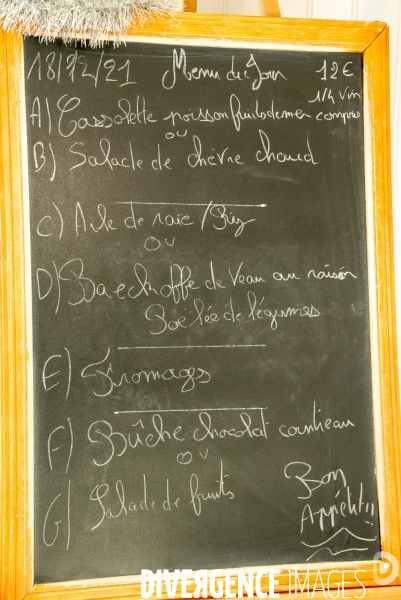 18/12/21 Menu du Jour 12€
1/4 vin compris
A) Cassolette poisson fruits de mer
ou
B) Salade de chèvre chaud
C) Aile de raie / Riz
ou
D) Baeckoffe de veau au raisin
Poêlée de légumes
E) Fromages
F) Bûche chocolat cointreau
ou
G) Salade de fruits
Bon
Appétit!!
DIVERGENCE IMAGES .com